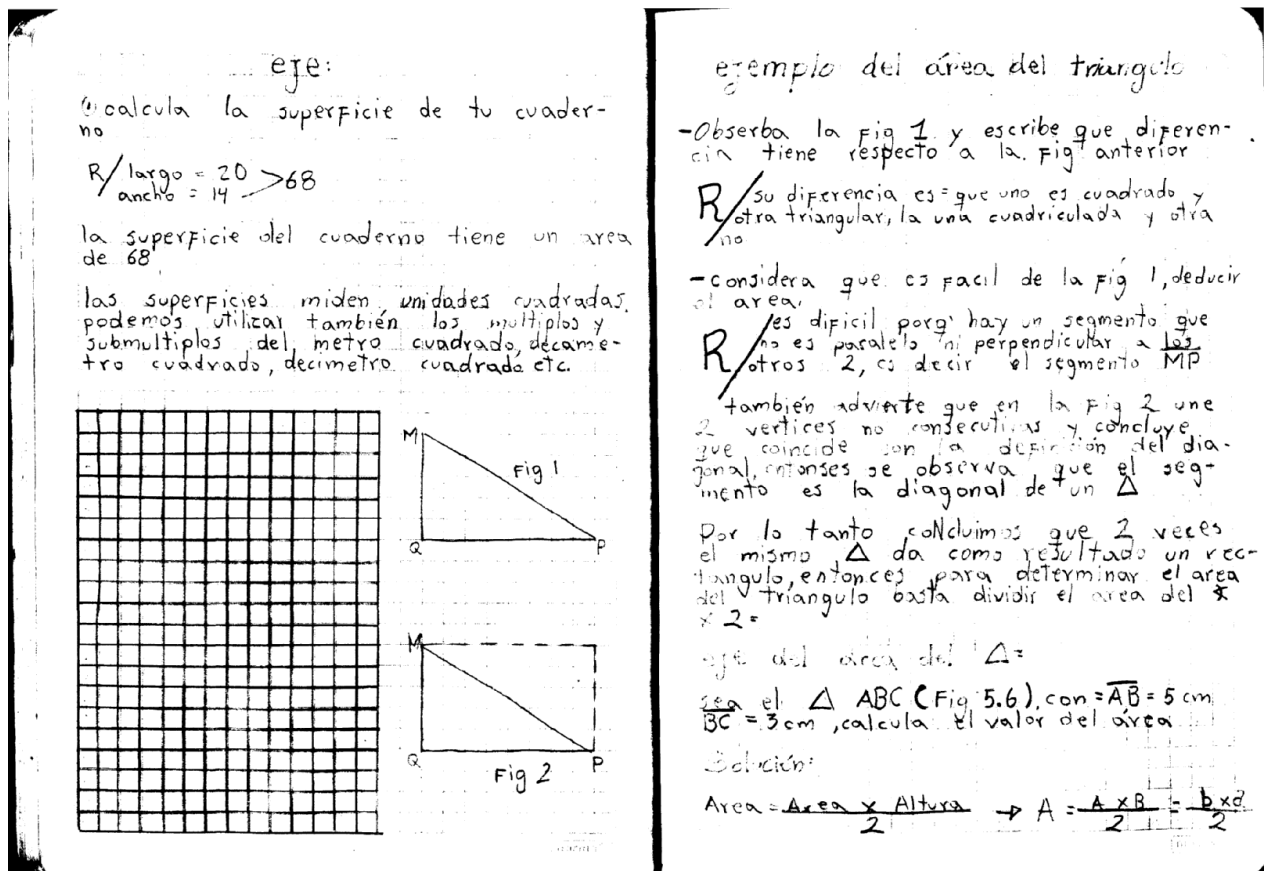 eje:
① calcula la superficie de tu cuader-
no
R/ largo = 20 > 68
ancho = 14
la superficie del cuaderno tiene un area
de 68
las superficies miden unidades cuadradas.
podemos utilizar también los multiplos y
submultiplos del metro cuadrado, decame-
tro cuadrado, decimetro cuadrado etc.
M
Fig 1
Q P
M
Q P
Fig 2
ejemplo del área del triangulo
-Observa la Fig 1 y escribe que diferen-
cia tiene respecto a la Fig anterior
R/ su diferencia es = que uno es cuadrado y
otra triangular, la una cuadriculada y otra
no
-considera que es facil de la Fig 1, deducir
el area.
R/ es dificil porq' hay un segmento que
no es paralelo ni perpendicular a los
otros 2, es decir el segmento MP
también advierte que en la Fig 2 une
2 vertices no consecutivos y concluye
que coincide con la definición del dia-
gonal, entonses se observa que el seg-
mento es la diagonal de un △
Por lo tanto coNcluimos que 2 veces
el mismo △ da como resultado un rec-
tangulo, entonces para determinar el area
del triangulo basta dividir el area del
x 2 =
eje del área del △=
sea el △ ABC (Fig 5.6), con = AB = 5 cm
BC = 3 cm, calcula el valor del área
Solución:
Area = Area x Altura / 2 → A = A x B / 2 = b x a / 2